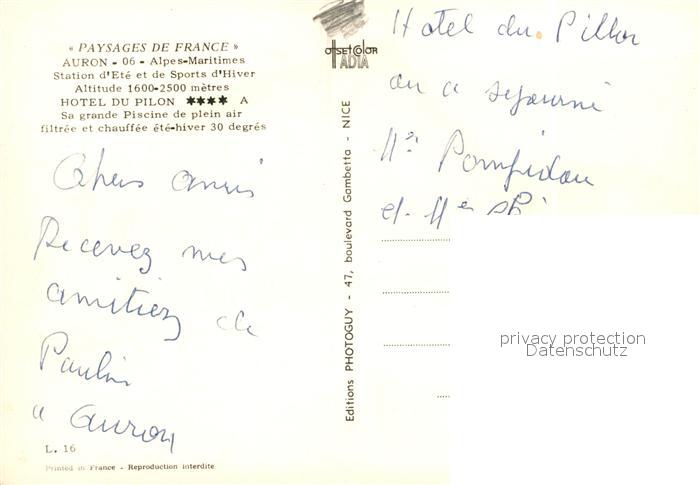 « PAYSAGES DE FRANCE »
AURON - 06 - Alpes-Maritimes
Station d'Eté et de Sports d'Hiver
Altitude 1600-2500 mètres
HOTEL DU PILON ✱✱✱✱ A
Sa grande Piscine de plein air
filtrée et chauffée été-hiver 30 degrés
Chers amis
Recevez mes
amitiez de
Paulin
a auron
L. 16
Printed in France - Reproduction interdite
OFFSETCOLOR
ADIA
Editions PHOTOGUY - 47, boulevard Gambetta - NICE
Hotel du Pillon
ou a sejourné
Mr Pompidou
et Me
privacy protection
Datenschutz